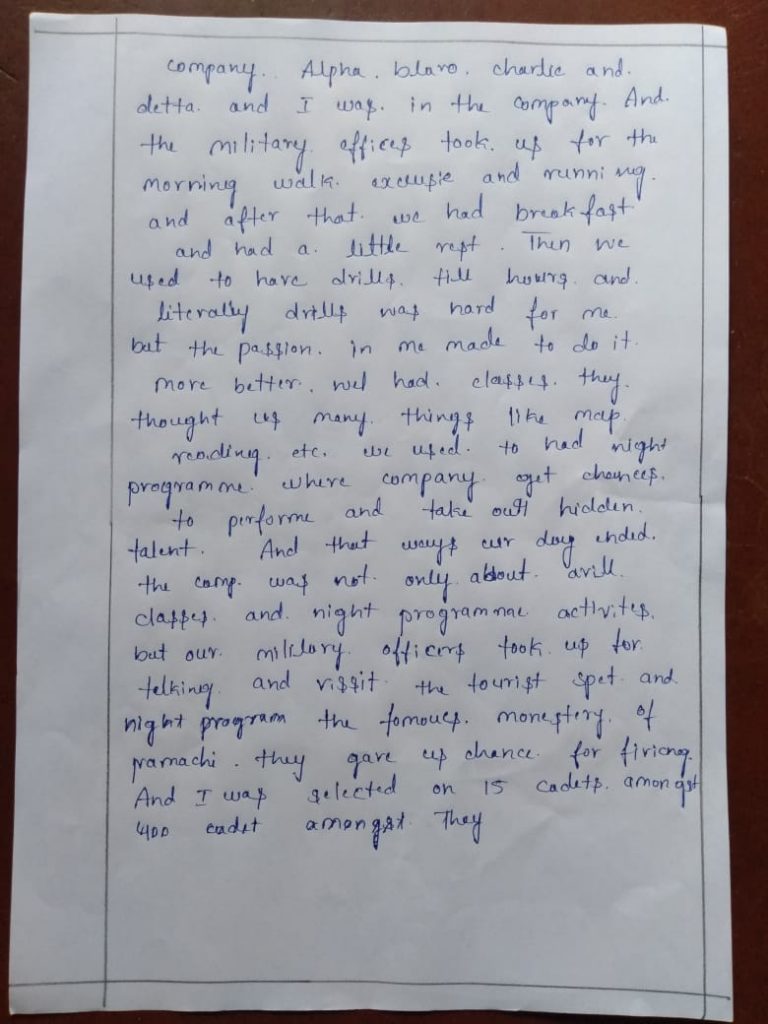 company. Alpha. blavo. charlie and.
detta. and I was. in the company. And.
the military. offices took. us for the
morning walk. excusie and running.
and after that. we had breakfast
and had a. little rest. Then we
used to have drills. till hours. and.
literally drills was hard for me.
but the passion. in me made to do it.
more better. wel had. classes. they.
thought us many. things like map.
reading. etc. we used. to had night
programme. where company. get chances.
to performe and take out hidden.
talent. And that ways our day ended.
the camp. was not. only about. drill.
classes. and. night programmae activites.
but our. military. officers took. us for.
telking. and vissit. the tourist spet and.
night program the famoues. monestery. of
pramachi. they gave us chance. for firing.
And I was selected on 15 cadets. amongst
400 cadet amongst. They